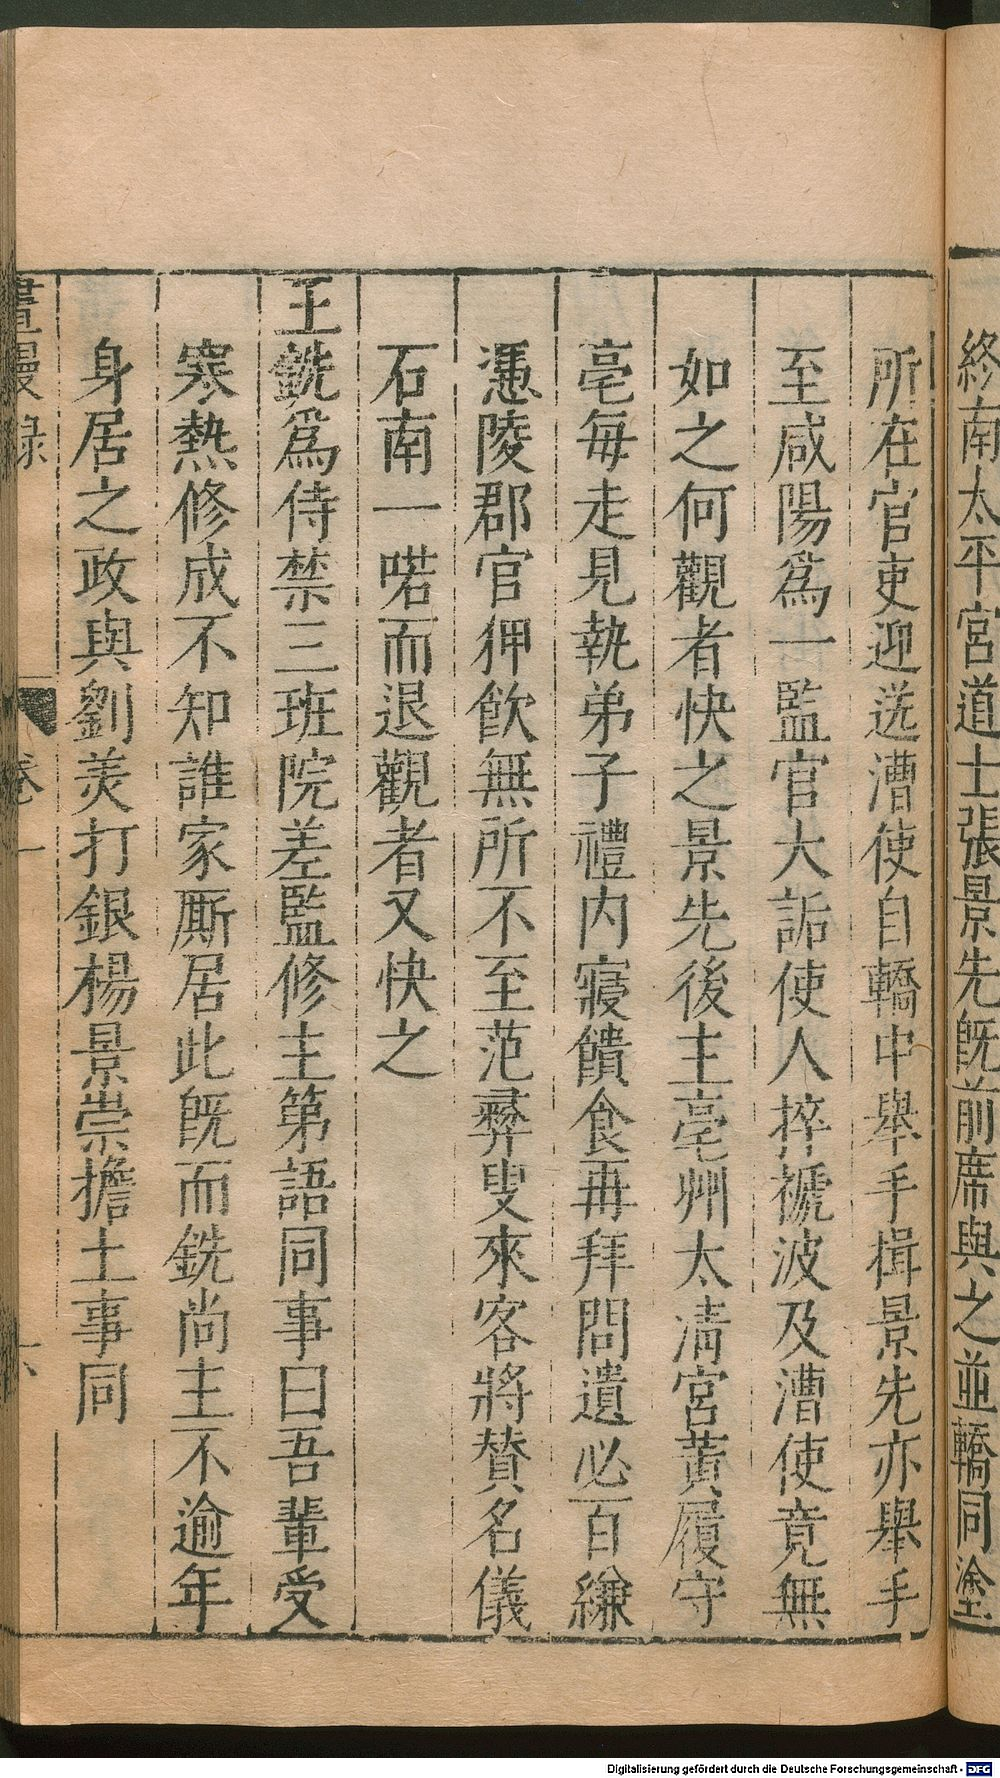 終南太平宮道士張景先旣前席與之並轎同塗
所在官吏迎送漕使自轎中舉手揖景先亦舉手
至咸陽爲一監官大詬使人捽褫波及漕使竟無
如之何觀者快之景先後主亳州太淸宮黃履守
亳每走見執弟子禮内寢饋食再拜問遺必百縑
憑陵郡官狎飮無所不至范彝叟來客將贊名儀
石南一喏而退觀者又快之
王銑爲侍禁三班院差監修主第語同事曰吾輩受
寒熱修成不知誰家厮居此旣而銑尚主不逾年
身居之政與劉羙打銀楊景崇擔土事同
畫墁錄 卷一 六
Digitalisierung gefördert durch die Deutsche Forschungsgemeinschaft - DFG